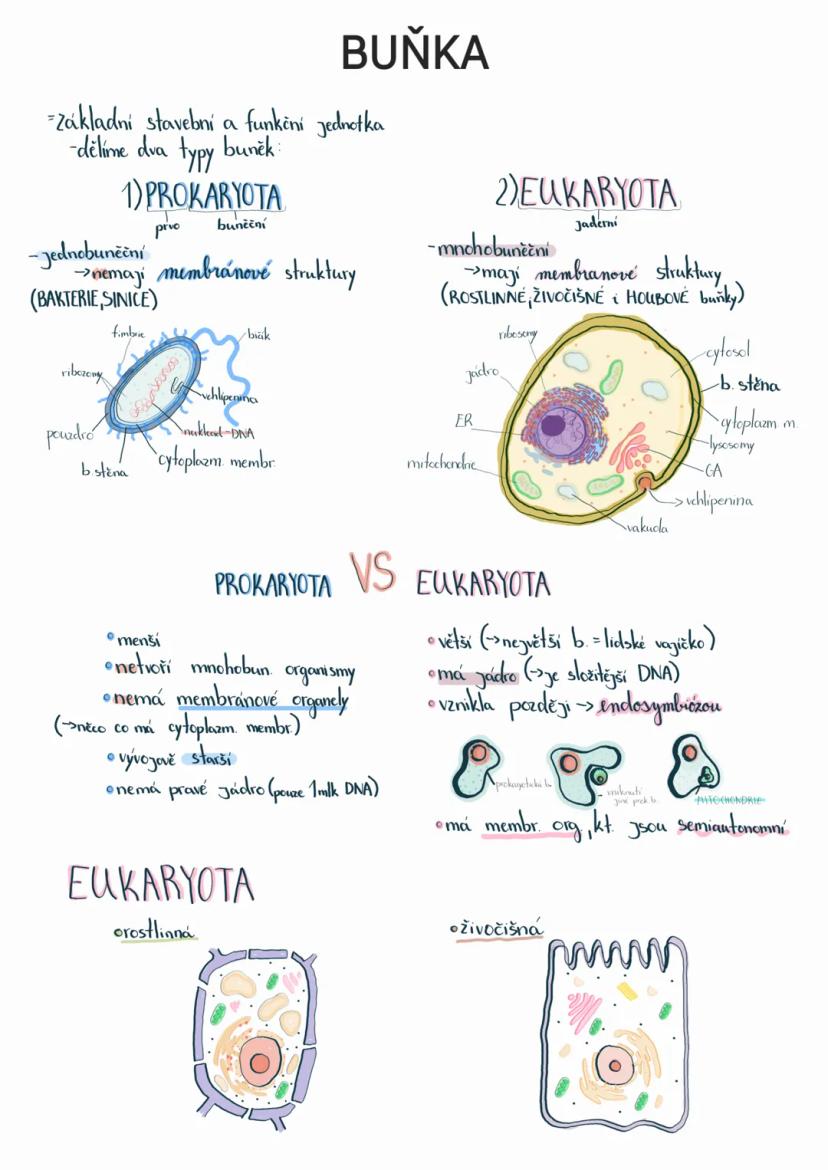 BUŇKA
=základní stavební a funkční jednotka
-dělíme dva typy buněk:
1)PROKARYOTA
prvo buněční
-jednobuněční
→nemají membránové struktury
(BAKTERIE,SINICE)
fimbrie
bičík
ribozomy
vchlípenina
pouzdro
nukleoid-DNA
b.stěna
cytoplazm. membr.
2)EUKARYOTA
jaderní
-mnohobuněční
→mají membranové struktury
(ROSTLINNÉ,ŽIVOČIŠNÉ i HOUBOVÉ buňky)
ribosomy
cytosol
jádro
b. stěna
ER
cytoplazm m.
lysosomy
mitochondrie
GA
→vchlípenina
vakuola
PROKARYOTA VS EUKARYOTA
•menší
•netvoří mnohobun. organismy
•nemá membránové organely
(→něco co má cytoplazm. membr.)
•vývojově starší
•nemá pravé jádro(pouze 1mlk DNA)
•větší (→největší b. = lidské vajíčko)
•má jádro (→je složitější DNA)
•vznikla později → endosymbiózou
prokaryotická b.
vniknutí
jiné prok. b.
MITOCHONDRIE
•má membr. org., kt. jsou semiautonomní
EUKARYOTA
•rostlinná
•živočišná